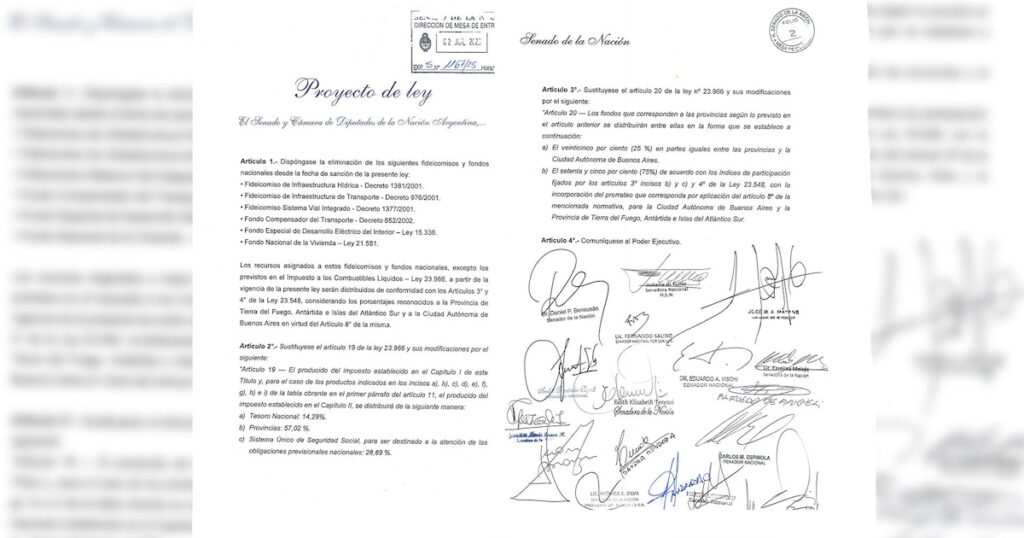 SENADO DE LA N
DIRECCIÓN DE MESA DE ENTR
02 JUL 202
EXP. S Nº 1167/25 Hora
Proyecto de ley
El Senado y Cámara de Diputados de la Nación Argentina,...
Artículo 1.- Dispóngase la eliminación de los siguientes fideicomisos y fondos
nacionales desde la fecha de sanción de la presente ley:
• Fideicomiso de Infraestructura Hídrica - Decreto 1381/2001.
• Fideicomiso de Infraestructura de Transporte - Decreto 976/2001.
• Fideicomiso Sistema Vial Integrado - Decreto 1377/2001.
• Fondo Compensador del Transporte - Decreto 652/2002.
• Fondo Especial de Desarrollo Eléctrico del Interior – Ley 15.336.
• Fondo Nacional de la Vivienda – Ley 21.581.
Los recursos asignados a estos fideicomisos y fondos nacionales, excepto los
previstos en el Impuesto a los Combustibles Líquidos – Ley 23.966, a partir de la
vigencia de la presente ley serán distribuidos de conformidad con los Artículos 3º y
4º de la Ley 23.548, considerando los porcentajes reconocidos a la Provincia de
Tierra del Fuego, Antártida e Islas del Atlántico Sur y a la Ciudad Autónoma de
Buenos Aires en virtud del Artículo 8º de la misma.
Artículo 2°.- Sustitúyese el artículo 19 de la ley 23.966 y sus modificaciones por el
siguiente:
"Artículo 19 — El producido del impuesto establecido en el Capítulo I de este
Título y, para el caso de los productos indicados en los incisos a), b), c), d), e), f),
g), h) e i) de la tabla obrante en el primer párrafo del artículo 11, el producido del
impuesto establecido en el Capítulo II, se distribuirá de la siguiente manera:
a) Tesoro Nacional: 14,29%.
b) Provincias: 57,02 %.
c) Sistema Único de Seguridad Social, para ser destinado a la atención de las
obligaciones previsionales nacionales: 28,69 %.
Senado de la Nación
H. SENADO DE LA NACION
FOLIO
2
Artículo 3°.- Sustituyese el artículo 20 de la ley nº 23.966 y sus modificaciones
por el siguiente:
"Artículo 20 — Los fondos que corresponden a las provincias según lo previsto en
el artículo anterior se distribuirán entre ellas en la forma que se establece a
continuación:
a) El veinticinco por ciento (25 %) en partes iguales entre las provincias y la
Ciudad Autónoma de Buenos Aires.
b) El setenta y cinco por ciento (75%) de acuerdo con los índices de participación
fijados por los artículos 3º incisos b) y c) y 4º de la Ley 23.548, con la
incorporación del prorrateo que corresponda por aplicación del artículo 8º de la
mencionada normativa, para la Ciudad Autónoma de Buenos Aires y la
Provincia de Tierra del Fuego, Antártida e Islas del Atlántico Sur.
Artículo 4°.- Comuníquese al Poder Ejecutivo.
Dr. Daniel P. Bensusán
Senador de la Nación
Senadora Nacional
H.S.N.
LIC. FERNANDO SALINO
SENADOR NACIONAL
Lic. Carolina Moisés
Senadora de la Nación
DR. EDUARDO A. VISCHI
SENADOR NACIONAL
ALFREDO DE ANGELI
Edith Elizabeth Terenzi
Senadora de la Nación
CARLOS M. ESPINOLA
SENADOR NACIONAL
LIC. MÓNICA E. SILVA